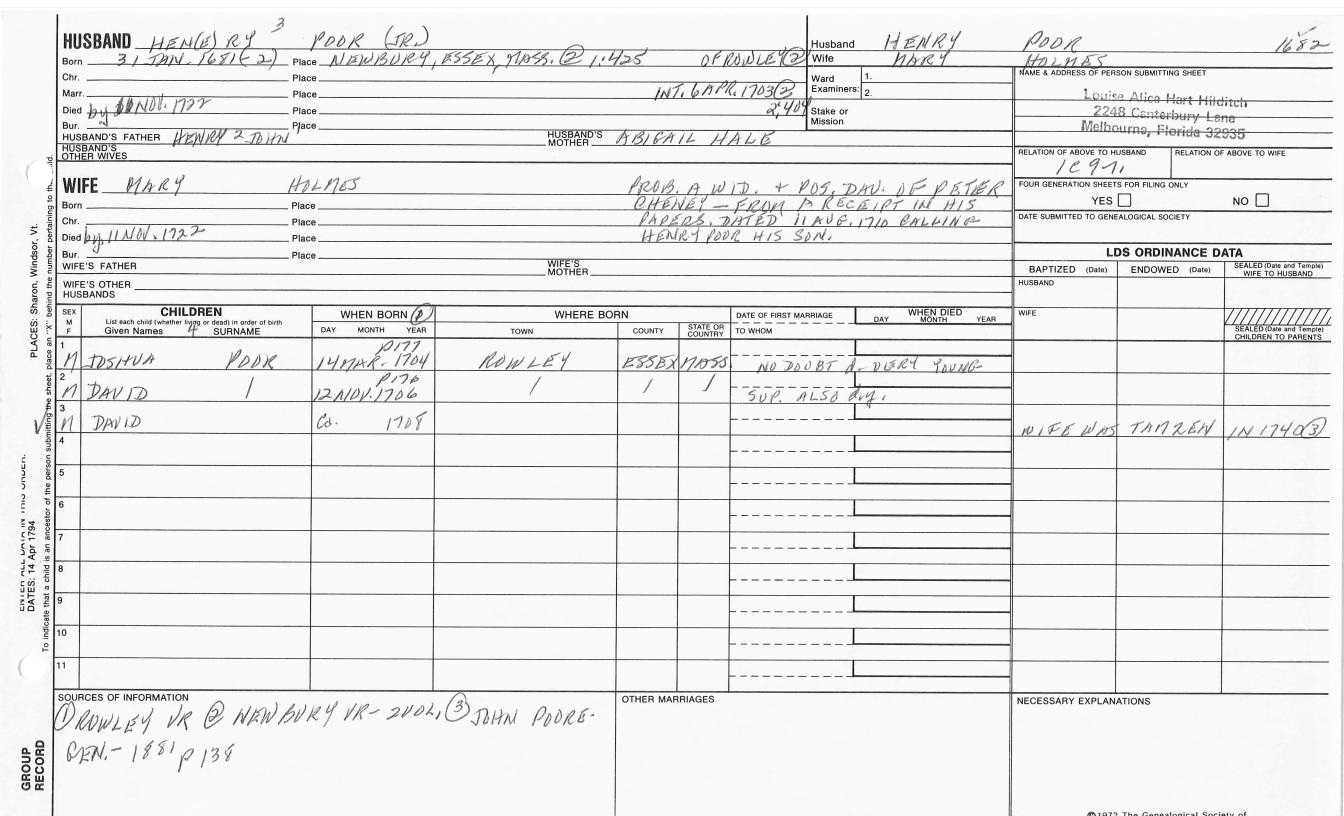 HUSBAND HEN(E)RY 3 POOR (JR.)
Born 31 JAN. 1681(-2) Place NEWBURY, ESSEX, MASS. ② 1:425 OF ROWLEY ②
Chr. Place
Marr. Place INT. 6 APR. 1703 ②
Died by NOV. 1722 Place 2,404
Bur. Place
HUSBAND'S FATHER HENRY 2 JOHN 1 HUSBAND'S MOTHER ABIGAIL HALE
HUSBAND'S OTHER WIVES
Husband HENRY POOR 1682
Wife MARY HOLMES
Ward Examiners: 1.
2.
Stake or Mission
NAME & ADDRESS OF PERSON SUBMITTING SHEET
Louise Alice Hart Hilditch
2248 Canterbury Lane
Melbourne, Florida 32935
RELATION OF ABOVE TO HUSBAND RELATION OF ABOVE TO WIFE
FOUR GENERATION SHEETS FOR FILING ONLY
YES NO
DATE SUBMITTED TO GENEALOGICAL SOCIETY
WIFE MARY HOLMES PROB. A WID. + POS. DAU. OF PETER
Born Place CHENEY — FROM A RECEIPT IN HIS
Chr. Place PAPERS, DATED 11 AUG. 1710 CALLING
Died by 11 NOV. 1722 Place HENRY POOR HIS SON.
Bur. Place
WIFE'S FATHER WIFE'S MOTHER
WIFE'S OTHER HUSBANDS
LDS ORDINANCE DATA
BAPTIZED (Date) ENDOWED (Date) SEALED (Date and Temple) WIFE TO HUSBAND
HUSBAND
WIFE
SEALED (Date and Temple) CHILDREN TO PARENTS
SEX M F CHILDREN WHEN BORN ① WHERE BORN DATE OF FIRST MARRIAGE WHEN DIED
List each child (whether living or dead) in order of birth
Given Names 4 SURNAME DAY MONTH YEAR TOWN COUNTY STATE OR COUNTRY TO WHOM DAY MONTH YEAR
1 p177
M JOSHUA POOR 14 MAR. 1704 ROWLEY ESSEX MASS NO DOUBT d. VERY YOUNG
2 p176
M DAVID / 12 NOV. 1706 / / / SUP. ALSO d.y.
3
M DAVID Ca. 1708 WIFE WAS TAMZEN IN 1740 ③
4
5
6
7
8
9
10
11
SOURCES OF INFORMATION
① ROWLEY VR ② NEWBURY VR- 2VOL, ③ JOHN POORE-
GEN.- 1881 p 138
OTHER MARRIAGES
NECESSARY EXPLANATIONS
©1972 The Genealogical Society of
PLACES: Sharon, Windsor, Vt.
ENTER ALL DATA IN THIS ORDER:
DATES: 14 Apr 1794
To indicate that a child is an ancestor of the person submitting the sheet, place an "X" behind the number pertaining to
GROUP RECORD